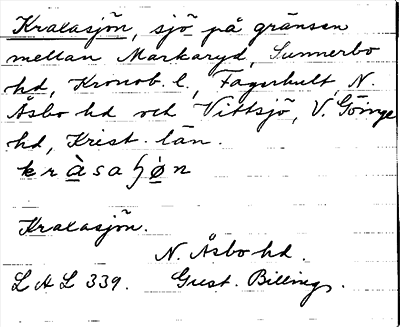 Kraxasjön, sjö på gränsen
mellan Markaryd, Sunnerbo
hd, Kronob. l., Fagerhult, N.
Åsbo hd och Vittsjö, V. Göinge
hd, Krist. län.
Kraxasjön.
N. Åsbo hd.
L A L 339. Gust. Billing.